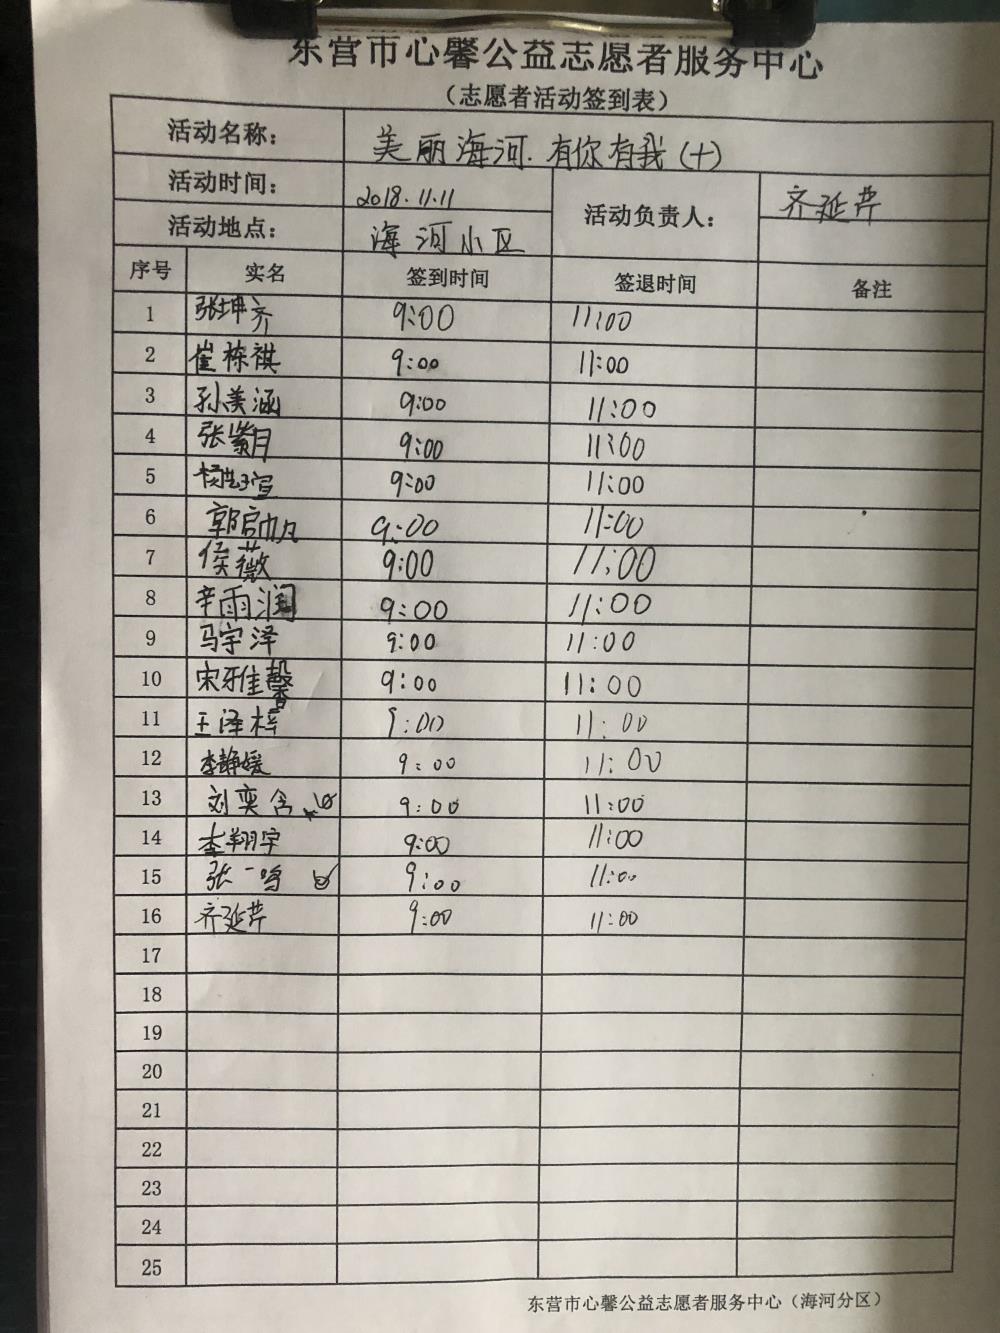 东营市心馨公益志愿者服务中心
（志愿者活动签到表）
活动名称： 美丽海河.有你有我(十)
活动时间： 2018.11.11 活动负责人： 齐延芹
活动地点： 海河小区
序号 实名 签到时间 签退时间 备注
1 张坤齐 9:00 11:00
2 崔栋祺 9:00 11:00
3 孙美涵 9:00 11:00
4 张紫月 9:00 11:00
5 9:00 11:00
6 郭启帆 9:00 11:00
7 侯薇 9:00 11:00
8 辛雨润 9:00 11:00
9 马宇泽 9:00 11:00
10 宋雅馨 9:00 11:00
11 王泽梓 9:00 11:00
12 李静媛 9:00 11:00
13 刘奕含 9:00 11:00
14 李翔宇 9:00 11:00
15 张一鸣 9:00 11:00
16 齐延芹 9:00 11:00
17
18
19
20
21
22
23
24
25
东营市心馨公益志愿者服务中心（海河分区）